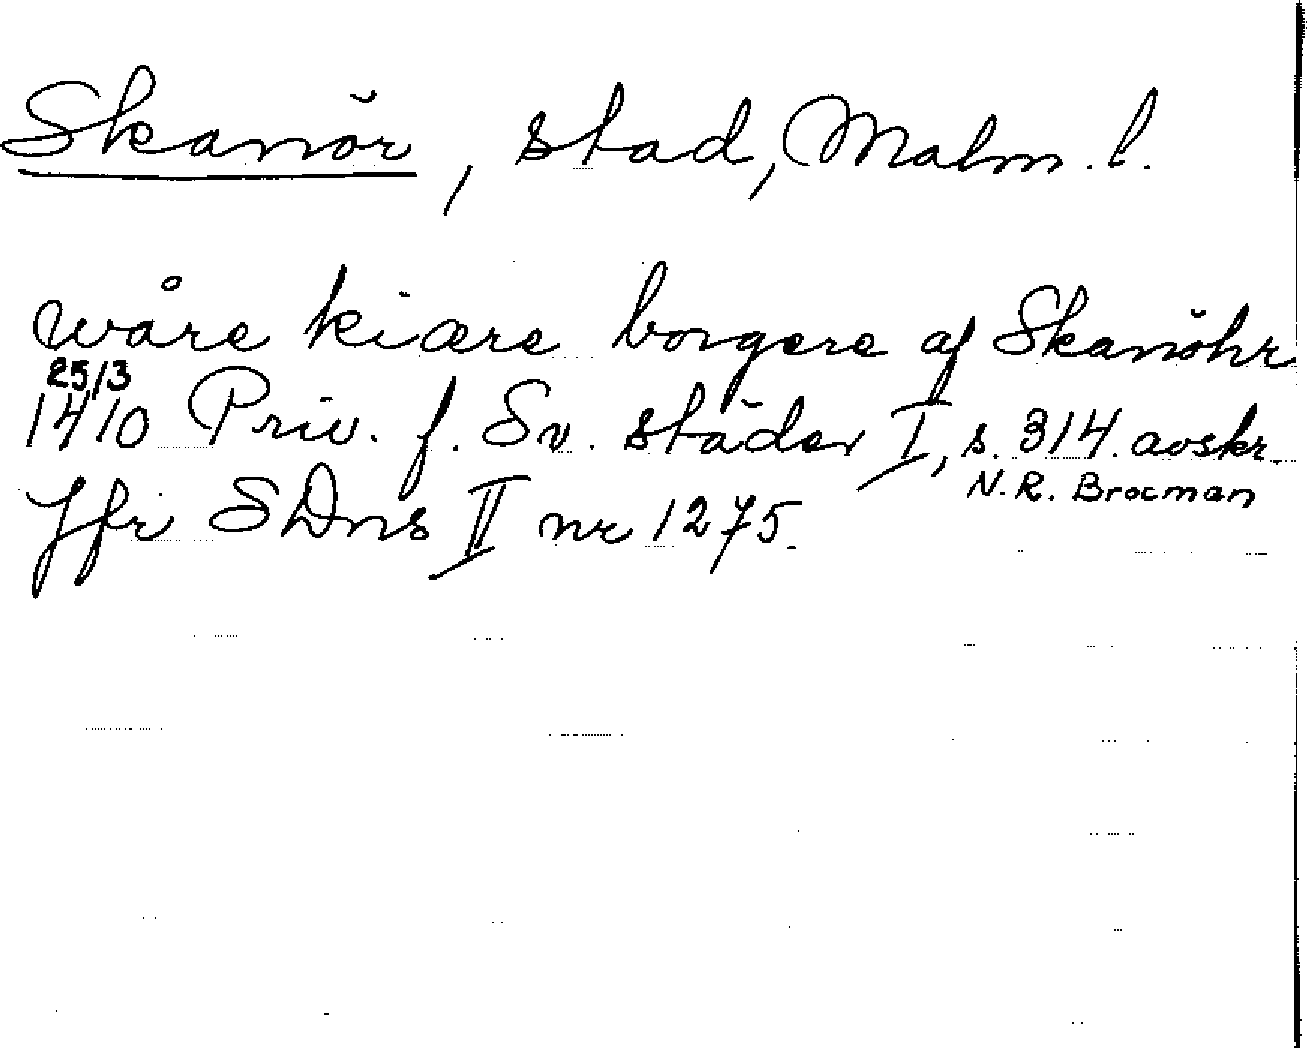 Skanör, stad, Malm. l.
wåre kiære borgere af Skanöhr
25/3
1410 Priv. f. Sv. städer I, s. 314. avskr.
N. R. Brocman
Jfr SDns II nr 1275.